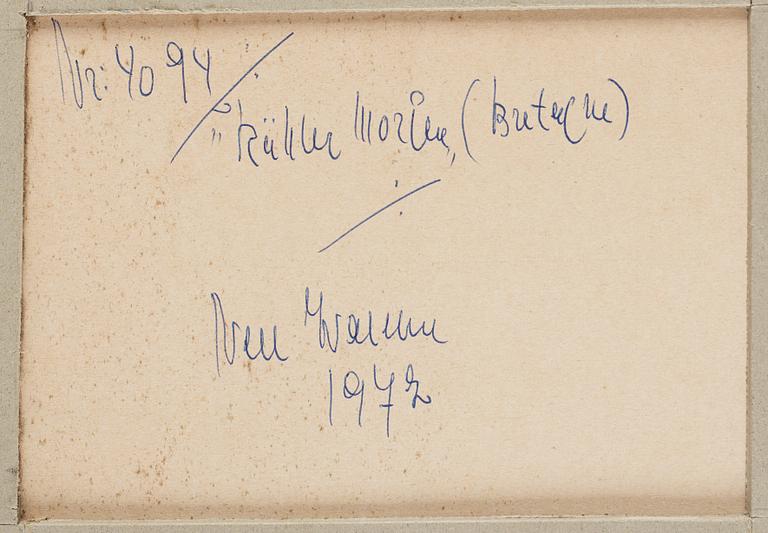 Nr: 4094
"Kühler Morgen" (Bretagne)
Nell Walden
1972